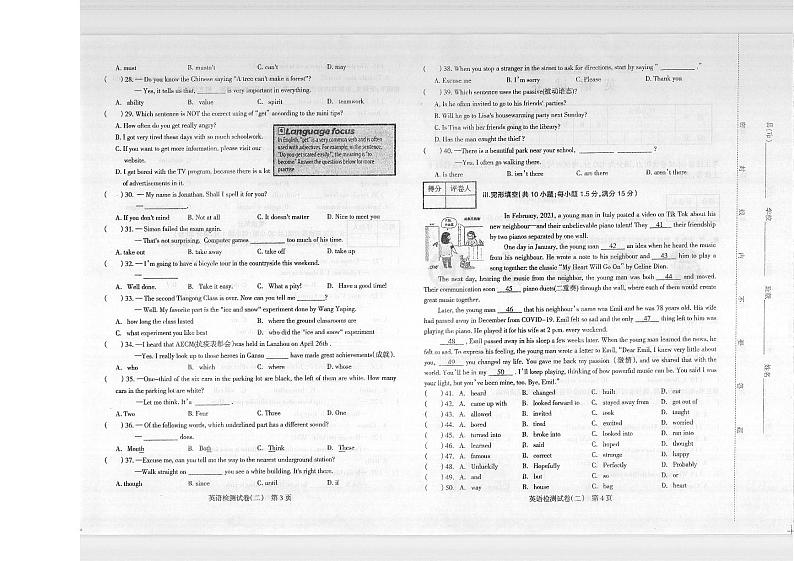 A. must B. mustn't C. can't D. may
( ) 28. — Do you know the Chinese saying "A tree can't make a forest"?
— Yes, it tells us that, ________ is very important in everything.
A. ability B. value C. spirit D. teamwork
( ) 29. Which sentence is NOT the correct using of "get" according to the mini tips?
A. How often do you get really angry?
B. I got very tired these days with so much schoolwork.
C. If you want to get more information, please visit our
website.
D. I got bored with the TV program, because there is a lot
of advertisements in it.
Language focus
In English, "get" is a very common verb and is often
used with adjectives. For example, in the sentence,
"Do you get scared easily?", the meaning is "to
become". Answer the questions below for more
practise.
( ) 30. — My name is Jonathan. Shall I spell it for you?
— ________.
A. If you don't mind B. Not at all C. It doesn't matter D. Nice to meet you
( ) 31. — Simon failed the exam again.
— That's not surprising. Computer games ________ too much of his time.
A. take out B. take away C. take off D. take up
( ) 32. — I'm going to have a bicycle tour in the countryside this weekend.
— ________
A. Well done. B. Take it easy. C. What a pity! D. Have a good time!
( ) 33. — The second Tiangong Class is over. Now can you tell me ________?
— Well. My favorite part is the "ice and snow" experiment done by Wang Yaping.
A. how long the class lasted B. where the ground classrooms are
C. what experiment you like best D. who did the "ice and snow" experiment
( ) 34. — I heard that AECM(抗疫表彰会)was held in Lanzhou on April 26th .
— Yes. I really look up to those heroes in Gansu ________ have made great achievements(成就).
A. who B. which C. where D. whose
( ) 35. —One-third of the six cars in the parking lot are black, the left of them are white. How many
cars in the parking lot are white?
—Let me think. It's ________ .
A. Two B. Four C. Three D. One
( ) 36. — Of the following words, which underlined part has a different sound?
— ________ does.
A. Mouth B. Both C. Think D. These
( ) 37. —Excuse me, can you tell me the way to the nearest underground station?
—Walk straight on ________ you see a white building. It's right there.
A. though B. since C. until D. if
英语检测试卷(二) 第 3 页
( ) 38. When you stop a stranger in the street to ask for directions, start by saying " ________ ."
A. Excuse me B. I'm sorry C. Please D. Thank you
( ) 39. Which sentence uses the passive(被动语态)?
A. Is he often invited to go to his friends' parties?
B. Will he go to Lisa's housewarming party next Sunday?
C. Is Tina with her friends going to the library?
D. Has the man caught the thief ?
( ) 40. —There is a beautiful park near your school, ________ ________?
—Yes. I often go walking there.
A. is there B. isn't there C. are there D. aren't there
得分 评卷人
III.完形填空(共 10 小题;每小题 1.5 分,满分 15 分)
In February, 2021, a young man in Italy posted a video on Tik Tok about his
new neighbour—and their unbelievable piano talent! They 41 their friendship
by two pianos separated by one wall.
One day in January, the young man 42 an idea when he heard the music
from his neighbour. He wrote a note to his neighbour and 43 him to play a
song together: the classic "My Heart Will Go On" by Celine Dion.
The next day, hearing the music from the neighbor, the young man was both 44 and moved.
Their communication soon 45 piano duets(二重奏) through the wall, where each of them would create
great music together.
Later, the young man 46 that his neighbour's name was Emil and he was 78 years old. His wife
had passed away in December from COVID-19. Emil felt so sad and the only 47 thing left to him was
playing the piano. He played it for his wife at 2 p.m. every weekend.
48 , Emil passed away in his sleep a few weeks later. When the young man learned the news, he
felt so sad. To express his feeling, the young man wrote a letter to Emil, "Dear Emil, I knew very little about
you, 49 you changed my life. You gave me back my passion (激情), and we shared that with the
world. You'll be in my 50 . I'll keep playing, thinking of how powerful music can be. You said I was
your light, but you've been mine, too. Bye, Emil."
( ) 41. A. heard B. changed C. built D. cut
( ) 42. A. came up with B. looked forward to C. stayed away from D. got out of
( ) 43. A. allowed B. invited C. took D. taught
( ) 44. A. bored B. tired C. excited D. worried
( ) 45. A. turned into B. broke into C. looked into D. ran into
( ) 46. A. learned B. said C. hoped D. thought
( ) 47. A. famous B. correct C. strange D. happy
( ) 48. A. Unluckily B. Hopefully C. Perfectly D. Probably
( ) 49. A. and B. but C. so D. or
( ) 50. A. way B. house C. bag D. heart
英语检测试卷(二) 第 4 页
密 封 线 内 不 要 答 题
学校
班级
姓名